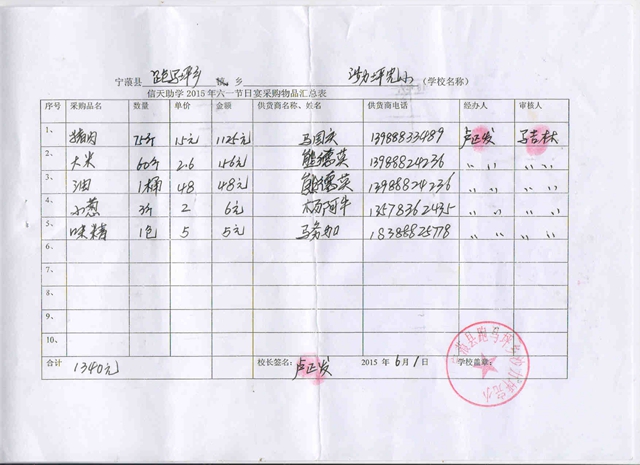 宁蒗县 跑马坪乡 镇 乡 完小 （学校名称）
信天助学 2015 年六一节日宴采购物品汇总表
序号 采购品名 数量 单价 金额 供货商名称、姓名 供货商电话 经办人 审核人
1、 猪肉 75斤 15元 1125元 马国庆 13988833489 卢正发 马吉林
2、 大米 60斤 2.6 156元 熊德英 13988824236 〃 〃 〃 〃
3、 油 1桶 48 48元 熊德英 13988824236 〃 〃 〃 〃
4、 小葱 3斤 2 6元 杨阿牛 13578362435 〃 〃 〃 〃
5、 味精 1包 5 5元 马务加 18388825778 〃 〃 〃 〃
6、
7、
8、
9、
10、
合计 1340元 校长签名： 卢正发 2015 年 6月1日 学校盖章：